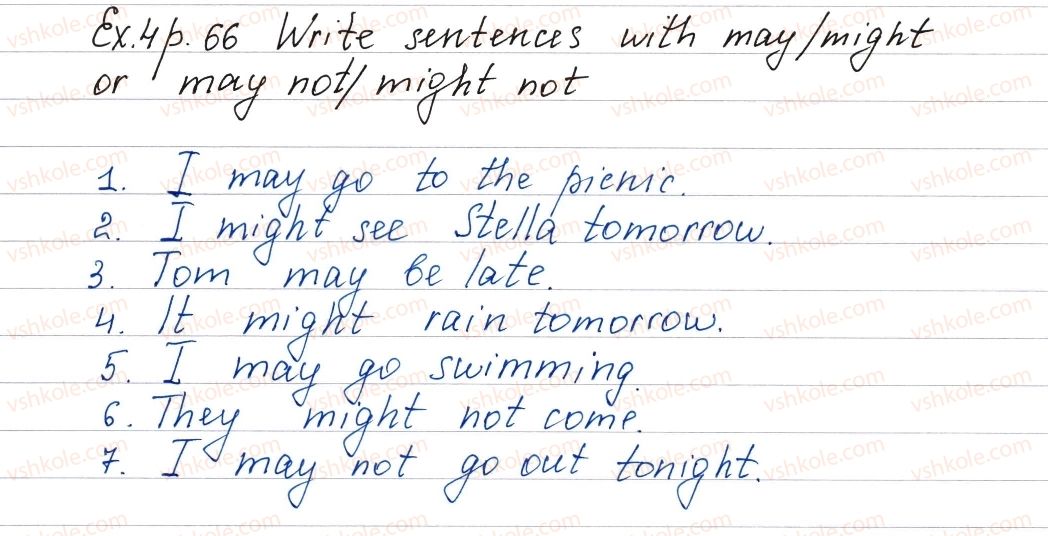 Ex.4 p. 66 Write sentences with may/might
or may not/might not
1. I may go to the picnic.
2. I might see Stella tomorrow.
3. Tom may be late.
4. It might rain tomorrow.
5. I may go swimming.
6. They might not come.
7. I may not go out tonight.